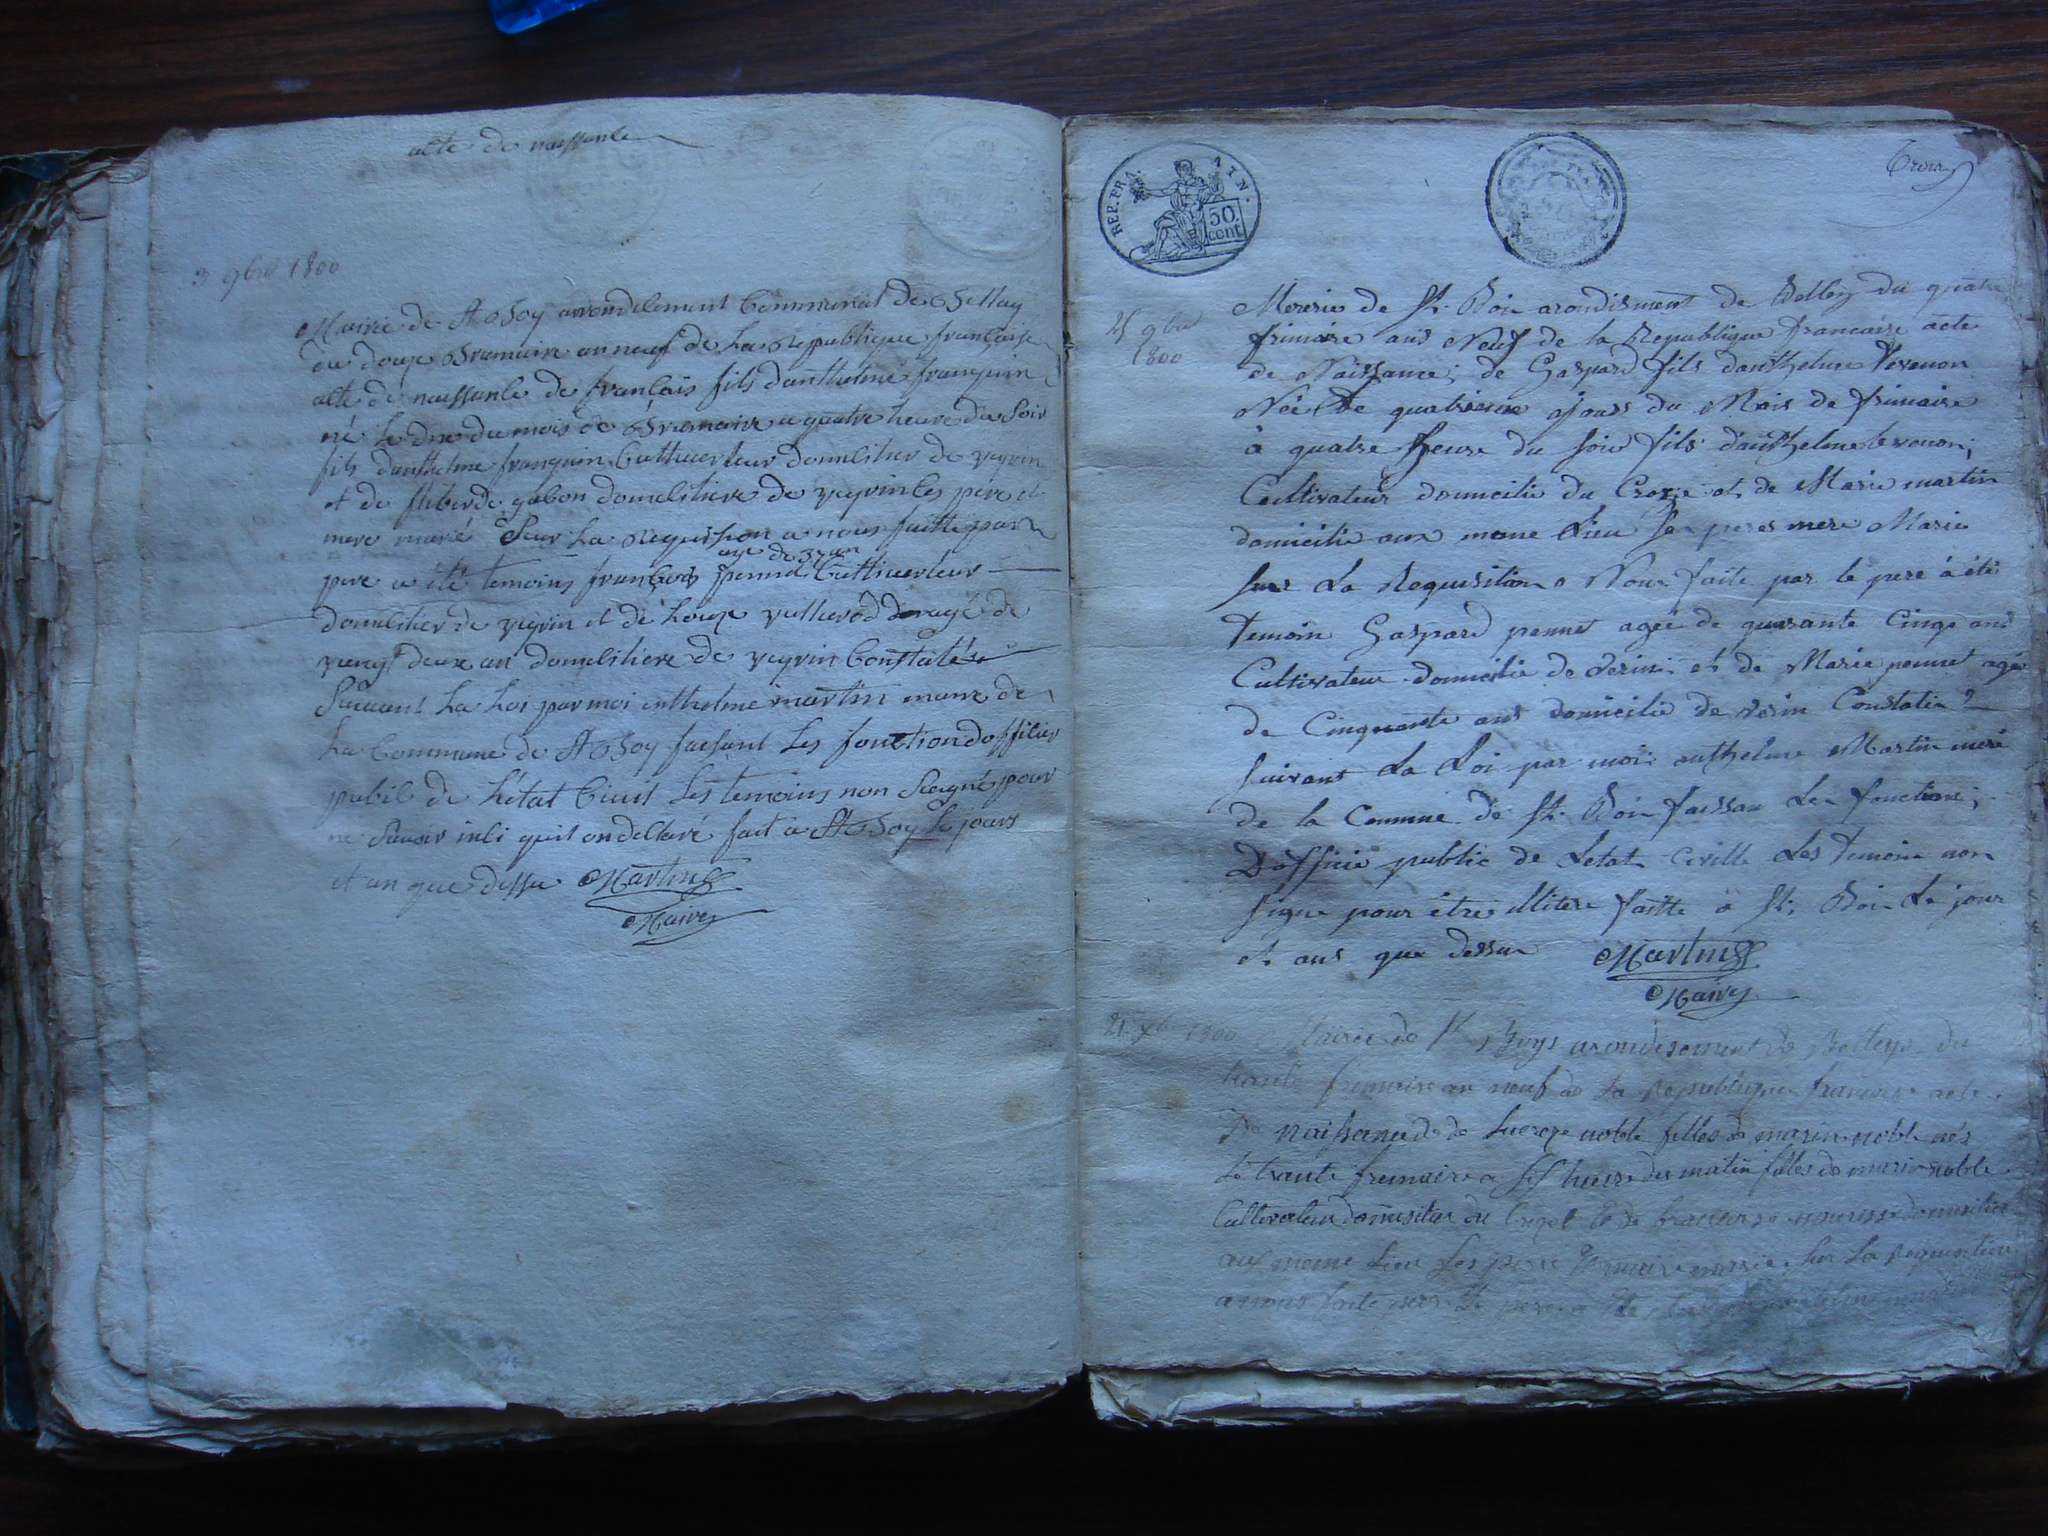 acte de naissance
3 9bre 1800
Mairie de St Boy arrondilement Communal de Bellay
du douze Bramaire an neuf de La republique française
alte de naissanle de françois fils d'anthelme franquin
né Le dix du mois de Bramaire a quatre heure du Soir
fils d'anthelme franquin Culltiverteur domeliher de veyrin
et de gabon domeliliere de veyrin les pere et
mere marié Sur La requision a nous faitte par
age de
pere a été temoins françois pennet Culltiverteur
domeliher de veyrin et de Louze agé de
vengt deux an domeliliere de veyrin Constaté
Suivent La Loi par moi enthelme martin maire de
La Commune de St Boy faesant Les fonction doffilier
publi de L'état Civil Les temoins non Seigné pour
ne Savoir inli quil on dellaré fait a St Boy Le jours
et an que dessu Martin
Maire
REP. FRA.
50
cent
Trois
25 9bre
1800
Mererie de St. Boi arondisment de Belley du quatre
frimaire ans Neuf de la Republique francaise acte
de Naissance, de Gaspard fils d'anthelme Tevenon
Née Le quatrieme Jours du Mois de frimaire
à quatre heure du soir fils d'anthelme tevenon,
Cultivateur domicilie du Croze et de Marie martin
domicilie aux meme Lieu Les peres mere Marie
sur La Requisition a Nous faite par le pere à été
Temoin Gaspard pennet agée de quarante Cinqe ans
Cultivateur domicilie de verin et de Marie pennet agée
de Cinquante ans domicilie de verin Constatée
suivant La Loi par moi anthelme Martin meré
de la Comune de St. Boi faissan Les fonctions,
D'officie public de Letat Civille Les Temoin non
signe pour être illitere faitte a St. Boi Le jour
et ans que dessu Martin
Maire
21 Xbre 1800 Mairée de St Boys arondisement de Belleys du
trante fremaire an neuf de La Republique francaise acte
De naissance de noble filles de marin noble nés
Le trante fremaire a heure du matin filles de marin noble
Cultivateur domisilier du et de domisilier
aux meme Lieu Les pere et maire marie Sur La Requisition
a nous faite par Le pere a été